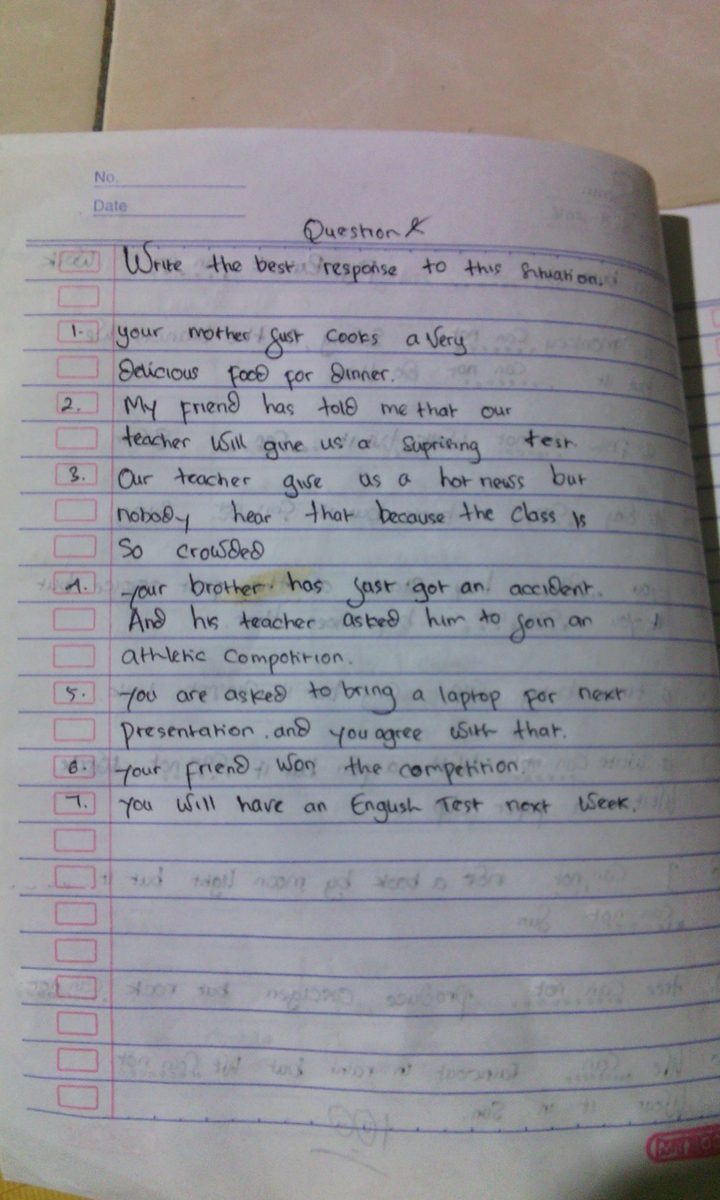 No.
Date
Question
Write the best response to this situation.
1. your mother just cooks a very
delicious food for dinner.
2. My friend has told me that our
teacher will give us a suprising test
3. Our teacher give us a hot news but
nobody hear that because the class is
so crowded
4. your brother has just got an accident.
And his teacher asked him to join an
athletic compotition.
5. you are asked to bring a laptop for next
presentation. and you agree with that.
6. your friend won the competition.
7. you will have an English Test next week.